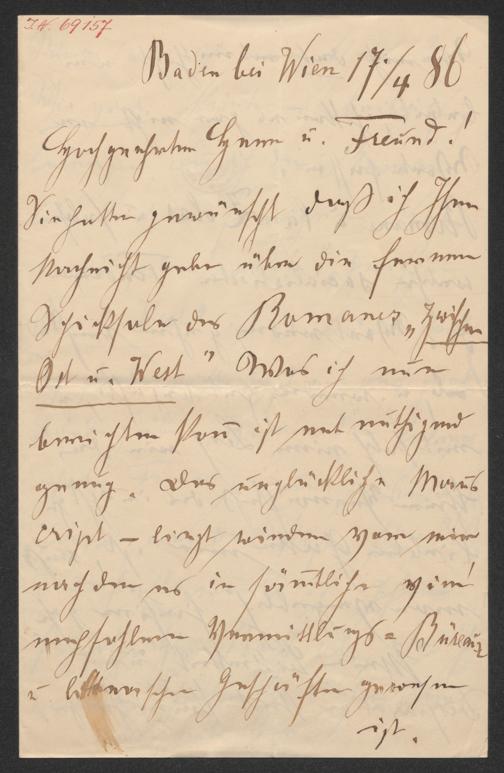 I.N. 69157
Baden bei Wien 17./4 86
Hochgeehrter Herr u. Freund!
Sie hatten gewünscht daß ich Ihnen
Nachricht gebe über die ferneren
Schicksale des Romanes „Zwischen
Ost u. West" Was ich nun
berichten kann ist
genug. Das unglückliche Manus
cript – liegt wieder vor mir
nachdem es in sämtliche
empfohlenen Vermittlungs = Büreaux
u literarischen Geschäften gewesen
ist.